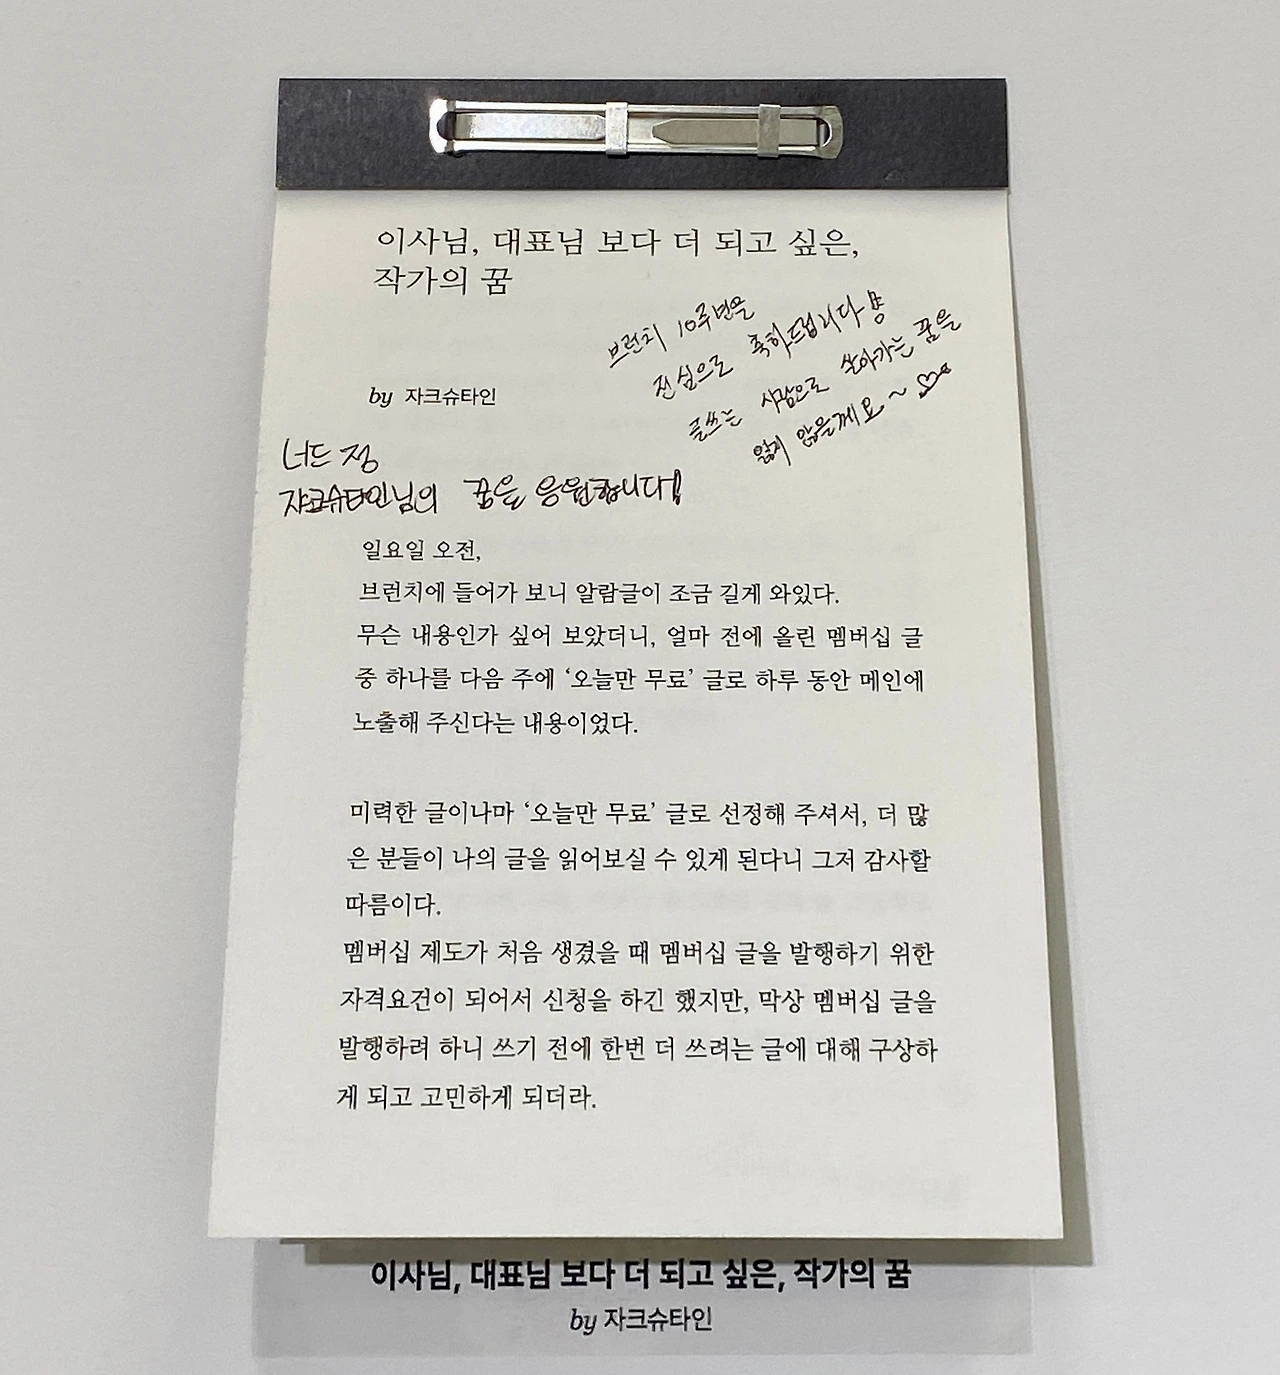 이사님, 대표님 보다 더 되고 싶은,
작가의 꿈
브런치 10주년을
진심으로 축하드립니다
글쓰는 사람으로 살아가는 꿈을
잃지 않을께요~
by 자크슈타인
너드 정
쟈크슈타인님의 꿈을 응원합니다!
일요일 오전,
브런치에 들어가 보니 알람글이 조금 길게 와있다.
무슨 내용인가 싶어 보았더니, 얼마 전에 올린 멤버십 글
중 하나를 다음 주에 ‘오늘만 무료’ 글로 하루 동안 메인에
노출해 주신다는 내용이었다.
미력한 글이나마 ‘오늘만 무료’ 글로 선정해 주셔서, 더 많
은 분들이 나의 글을 읽어보실 수 있게 된다니 그저 감사할
따름이다.
멤버십 제도가 처음 생겼을 때 멤버십 글을 발행하기 위한
자격요건이 되어서 신청을 하긴 했지만, 막상 멤버십 글을
발행하려 하니 쓰기 전에 한번 더 쓰려는 글에 대해 구상하
게 되고 고민하게 되더라.
이사님, 대표님 보다 더 되고 싶은, 작가의 꿈
by 자크슈타인